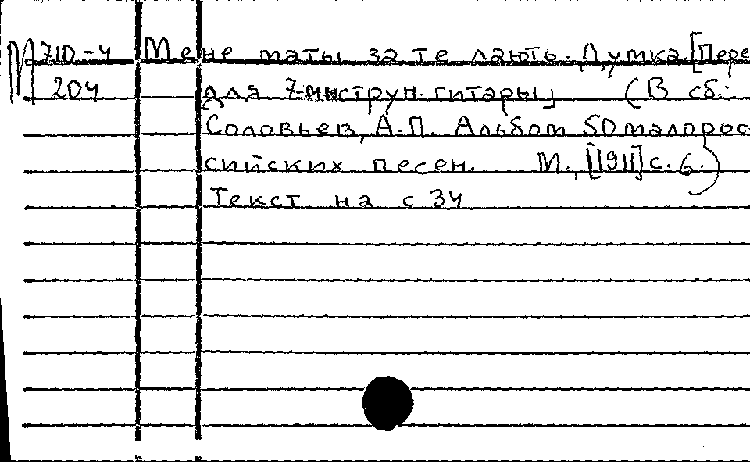 М 710-4 Мене маты за те лають. Думка. [Пере
204 для 7-миструн. гитары] (В сб.:
Соловьев, А.П. Альбом 50 малорос
сийских песен. М., [1911] с. 6.)
Текст на с 34